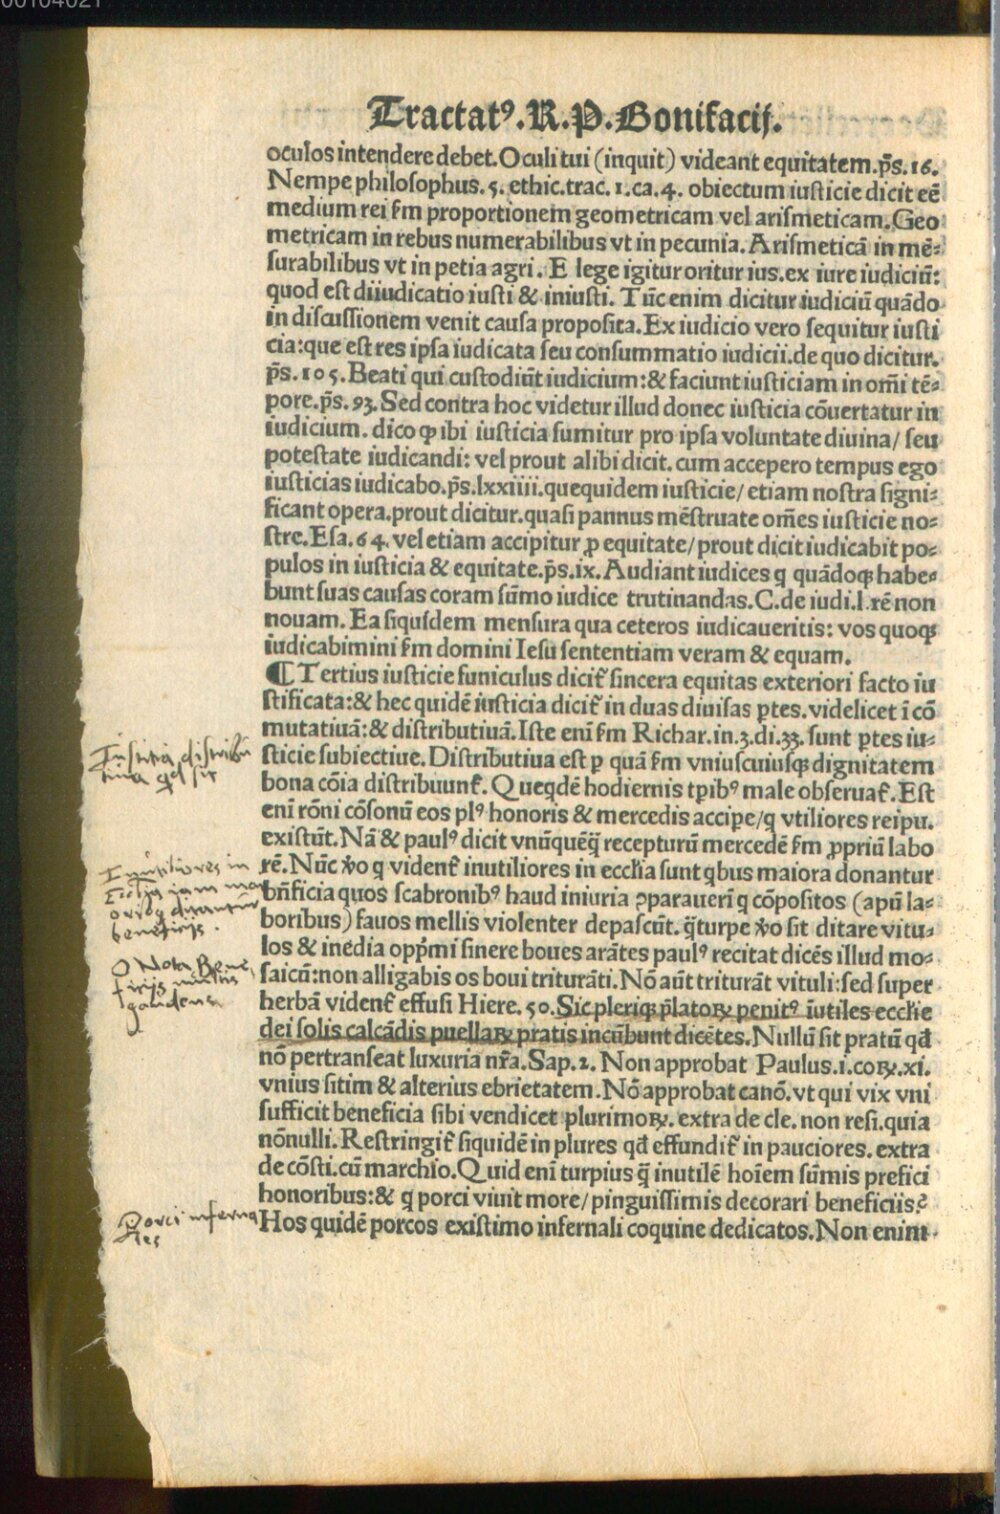 00104021
Tractatꝰ.R.P.Bonifacij.
oculos intendere debet.Oculi tui (inquit) videant equitatem.p̄s.16.
Nempe philosophus.5.ethic.trac.1.ca.4. obiectum iusticie dicit eē
medium rei ẜm proportionem geometricam vel arismeticam.Geo
metricam in rebus numerabilibus vt in pecunia.Arismeticā in mē⸗
surabilibus vt in petia agri. E lege igitur oritur ius.ex iure iudiciū:
quod est diiudicatio iusti & iniusti. Tūc enim dicitur iudiciū quādo
in discussionem venit causa proposita.Ex iudicio vero sequitur iusti
cia:que est res ipsa iudicata seu consummatio iudicii.de quo dicitur.
p̄s.105.Beati qui custodiūt iudicium:& faciunt iusticiam in om̄i tē⸗
pore.p̄s.93.Sed contra hoc videtur illud donec iusticia cōuertatur in
iudicium. dico ꝙ ibi iusticia sumitur pro ipsa voluntate diuina/ seu
potestate iudicandi: vel prout alibi dicit. cum accepero tempus ego
iusticias iudicabo.p̄s.lxxiiii.quequidem iusticie/ etiam nostra signi⸗
ficant opera.prout dicitur.quasi pannus mēstruate om̄es iusticie no⸗
stre.Esa.64. vel etiam accipitur ꝓ equitate/prout dicit iudicabit po⸗
pulos in iusticia & equitate.p̄s.ix.Audiant iudices q quādoqꝫ habe⸗
bunt suas causas coram sūmo iudice trutinandas.C.de iudi.l.rē non
nouam. Ea siquidem mensura qua ceteros iudicaueritis: vos quoqꝫ
iudicabimini ẜm domini Iesu sententiam veram & equam.
¶Tertius iusticie funiculus dicit᷑ sincera equitas exteriori facto iu
stificata:& hec quidē iusticia dicit᷑ in duas diuisas ꝑtes.videlicet ī cō
mutatiuā:& distributiuā.Iste enī ẜm Richar.in.3.di.33. sunt ꝑtes iu⸗
sticie subiectiue.Distributiua est ꝑ quā ẜm vniuscuiusqꝫ dignitatem
bona cōia distribuunt᷑. Queqdē hodiernis tꝑibꝰ male obseruat᷑.Est
enī rōni cōsonū eos plꝰ honoris & mercedis accipe/q vtiliores reipu.
existūt.Nā & paulꝰ dicit vnūquēq̄ recepturū mercedē ẜm ꝓpriū labo
rē.Nūc v̊o q vident᷑ inutiliores in ecclīa sunt qbus maiora donantur
bn̄ficia quos scabronibꝰ haud iniuria ꝯparauerī q cōpositos (apū la⸗
boribus) fauos mellis violenter depascūt. q̄turpe v̊o sit ditare vitu⸗
los & inedia opp̄mi sinere boues arātes paulꝰ recitat dicēs illud mo⸗
saicū:non alligabis os boui triturāti.Nō aūt triturāt vituli:sed super
herbā vident᷑ effusi Hiere.50.Sic pleriqꝫ p̄latoꝝ penitꝰ iūtiles ecclīe
dei solis calcādis puellaꝝ pratis incūbunt dicētes.Nullū sit pratū qđ
nō pertranseat luxuria nr̄a.Sap.2. Non approbat Paulus.i.coꝝ.xi.
vnius sitim & alterius ebrietatem.Nō approbat canō.vt qui vix vni
sufficit beneficia sibi vendicet plurimoꝝ. extra de cle. non resi.quia
nōnulli.Restringit᷑ siquidē in plures qđ effundit᷑ in pauciores. extra
de cōsti.cū marchio.Quid enī turpius q̄ inutilē hoīem sūmis prefici
honoribus:& q porci viuit more/pinguissimis decorari beneficiis?
Hos quidē porcos existimo infernali coquine dedicatos.Non enim
Iustitia distribu
tiua qd sit
Inutiliores in
Ecclia iam ma
oribꝫ ditantur
beneficijs.
O Nota Bene
ficijs multis
gaudens
Porci inferna
les